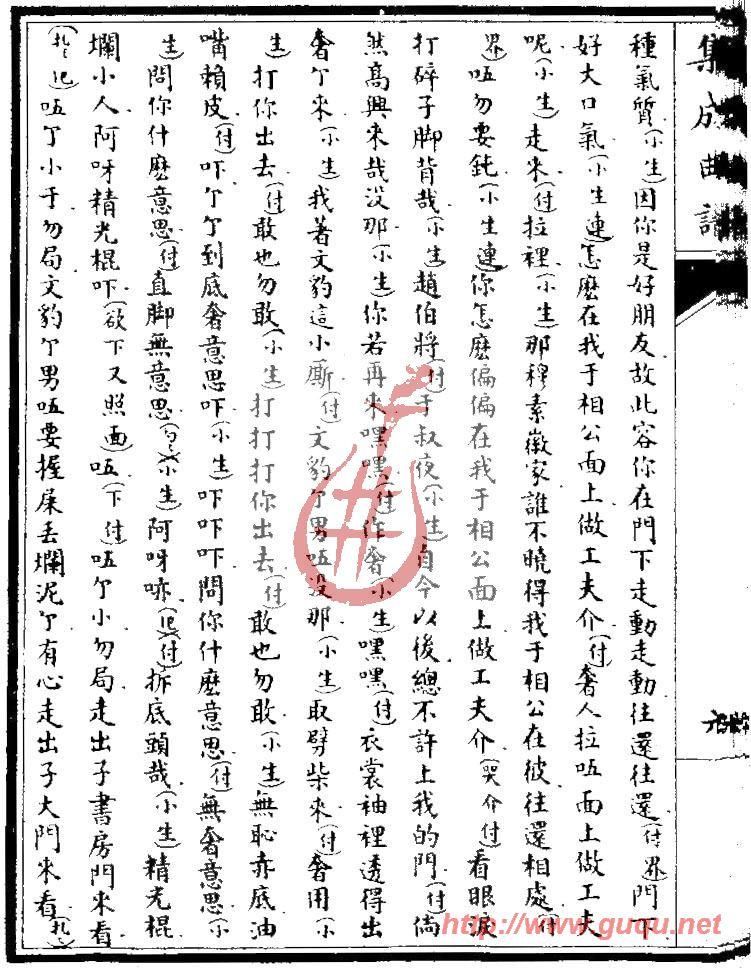 集成曲譜
種氣質(小生)因你是好朋友故此容你在門下走動走動往還往還(付界)門下
好大口氣(小生連)怎麽在我于相公面上做工夫介(付)奢人拉咗面上做工夫
呢(小生)走來(付)拉裡(小生)那穆素徽家誰不曉得我于相公在彼往還相處(付
界)咗勿要鈍(小生連)你怎麽偏偏在我于相公面上做工夫介(哭介付)看眼淚
打碎子脚背哉(小生)趙伯將(付)于叔夜(小生)自今以後總不許上我的門(付)倘
然高興來哉没那(小生)你若再來嘿嘿(付)作奢(小生)嘿嘿(付)衣裳袖裡透得出
奢个來(小生)我著文豹這小厮(付)文豹个男咗没那(小生)取劈柴來(付)奢用(小
生)打你出去(付)敢也勿敢(小生)打打打你出去(付)敢也勿敢(小生)無恥赤底油
嘴賴皮(付)吓个个到底奢意思吓(小生)吓吓吓問你什麽意思(付)無奢意思(小
生)問你什麽意思(付)直脚無意思(小生)阿呀𠲔(付)拆底頭哉(小生)精光棍
爛小人阿呀精光棍吓(欲下又照面)咗(下付)咗个小勿局走出子書房門來看
咗个小于勿局文豹个男咗要握屎丢爛泥个有心走出子大門來看
http://www.guqu.net